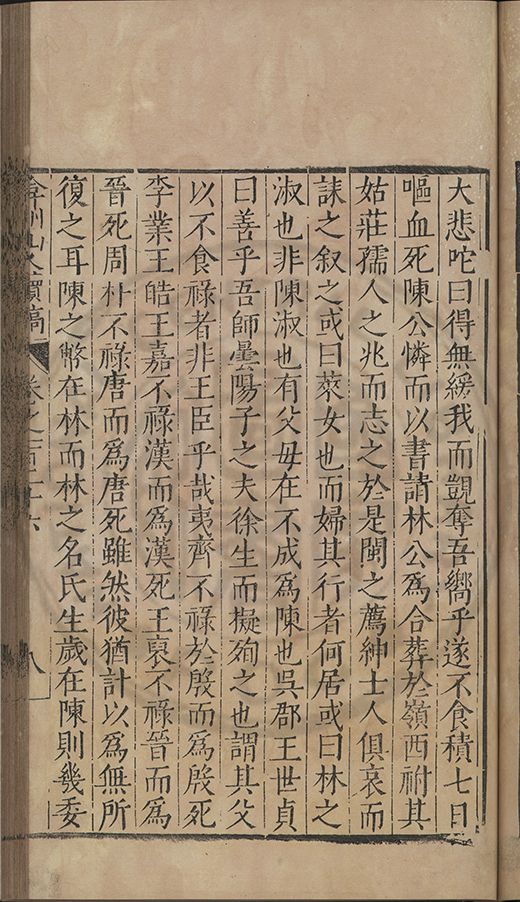 大悲咤曰得無緩我而覬奪吾嚮乎遂不食積七日
嘔血死陳公憐而以書請林公爲合葬於嶺西祔其
姑莊孺人之兆而志之於是閩之薦紳士人俱哀而
誄之叙之或曰萊女也而婦其行者何居或曰林之
淑也非陳淑也有父母在不成爲陳也吳郡王世貞
曰善乎吾師曇陽子之夫徐生而擬殉之也謂其父
以不食祿者非王臣乎哉夷齊不祿於殷而爲殷死
李業王皓王嘉不祿漢而爲漢死王裒不祿晉而爲
晉死周朴不祿唐而爲唐死雖然彼猶計以爲無所
復之耳陳之幣在林而林之名氏生歲在陳則幾委
弇州山人續稿
卷之一百二十六
八